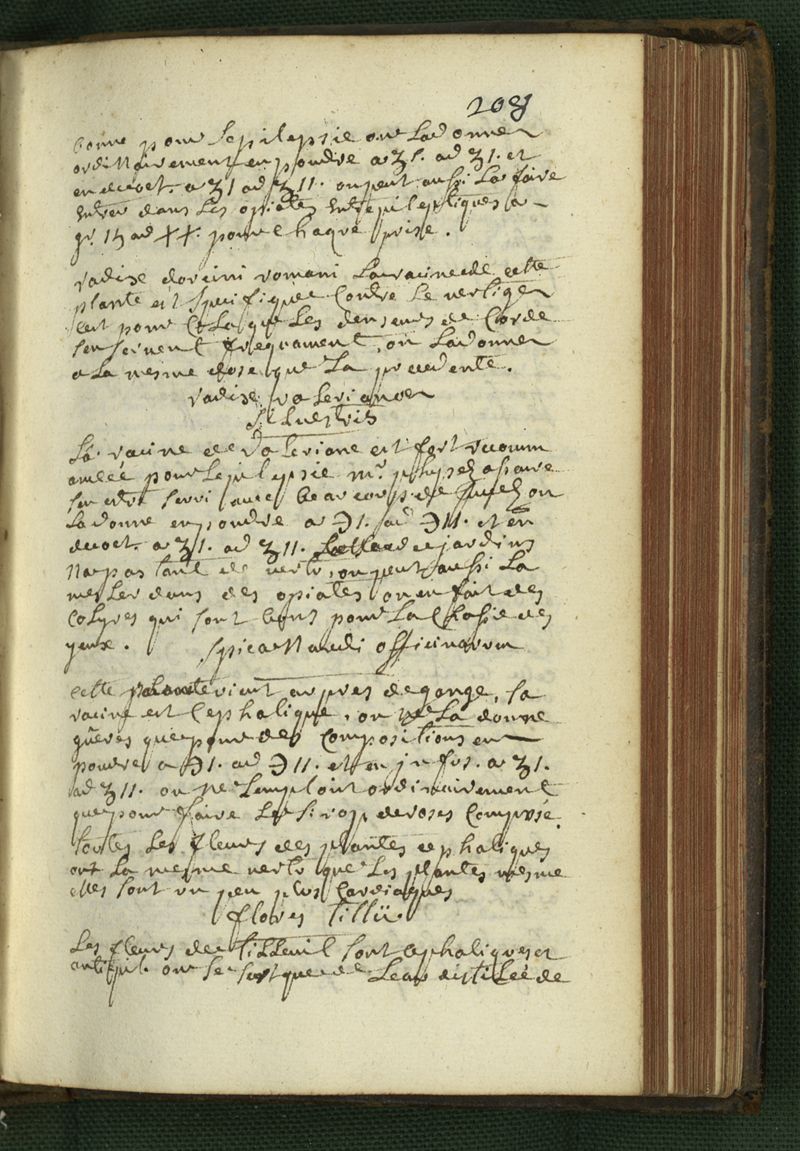 208
bonne pour Lepilepsie on La donne
ordinairement en poudre a ʒ1. ad ʒ1. et
en decoct. a ʒ1 ad ʒ11. on peut aussi La faire
entrer dans Les opiates antiepileptiques a
gr. 15 ad ++. pour chaque prise.
radixe doronici romani La racine de cette
plante est specifique Contre Le vertige
cest pour Cela que Les danseurs de Corde
sen servent frequament, on La donne
a La mesme dose que La precedente.
radixe valerianae
silvestris
La racine de Valeriane est fort recomm
andée pour Lepilepsie mr.
sen estre servi avec beaucoup de succez on
La donne en poudre a ℈1. ad ℈11. et en
decoct. a ʒ1. ad ʒ11. de jardins
Na pas tant de vertu, on peut aussi La
mesler dans des opiates on en fait des
Colyres qui sont bons pour La Chassie des
yeux. Spica Nardi officinarum
cette plante vient aupres de gange, sa
racine est Cephalique, on ne La donne
gueres que pour des Compositions en
poudre a ℈1. ad ℈11. et en jnfus. a ʒ1.
ad ʒ11. on ne Lemploit ordinairement
que pour faire Le sirop de roses Composé.
toutes Les fleurs des plantes cephaliques
ont La mesme vertu que Les plantes mesme
elles sont un peu plus Cardiaques
flores tillii.
Les fleurs de tilleuil sont cephaliques et
antiepil. on se sert que de Leau distilée de